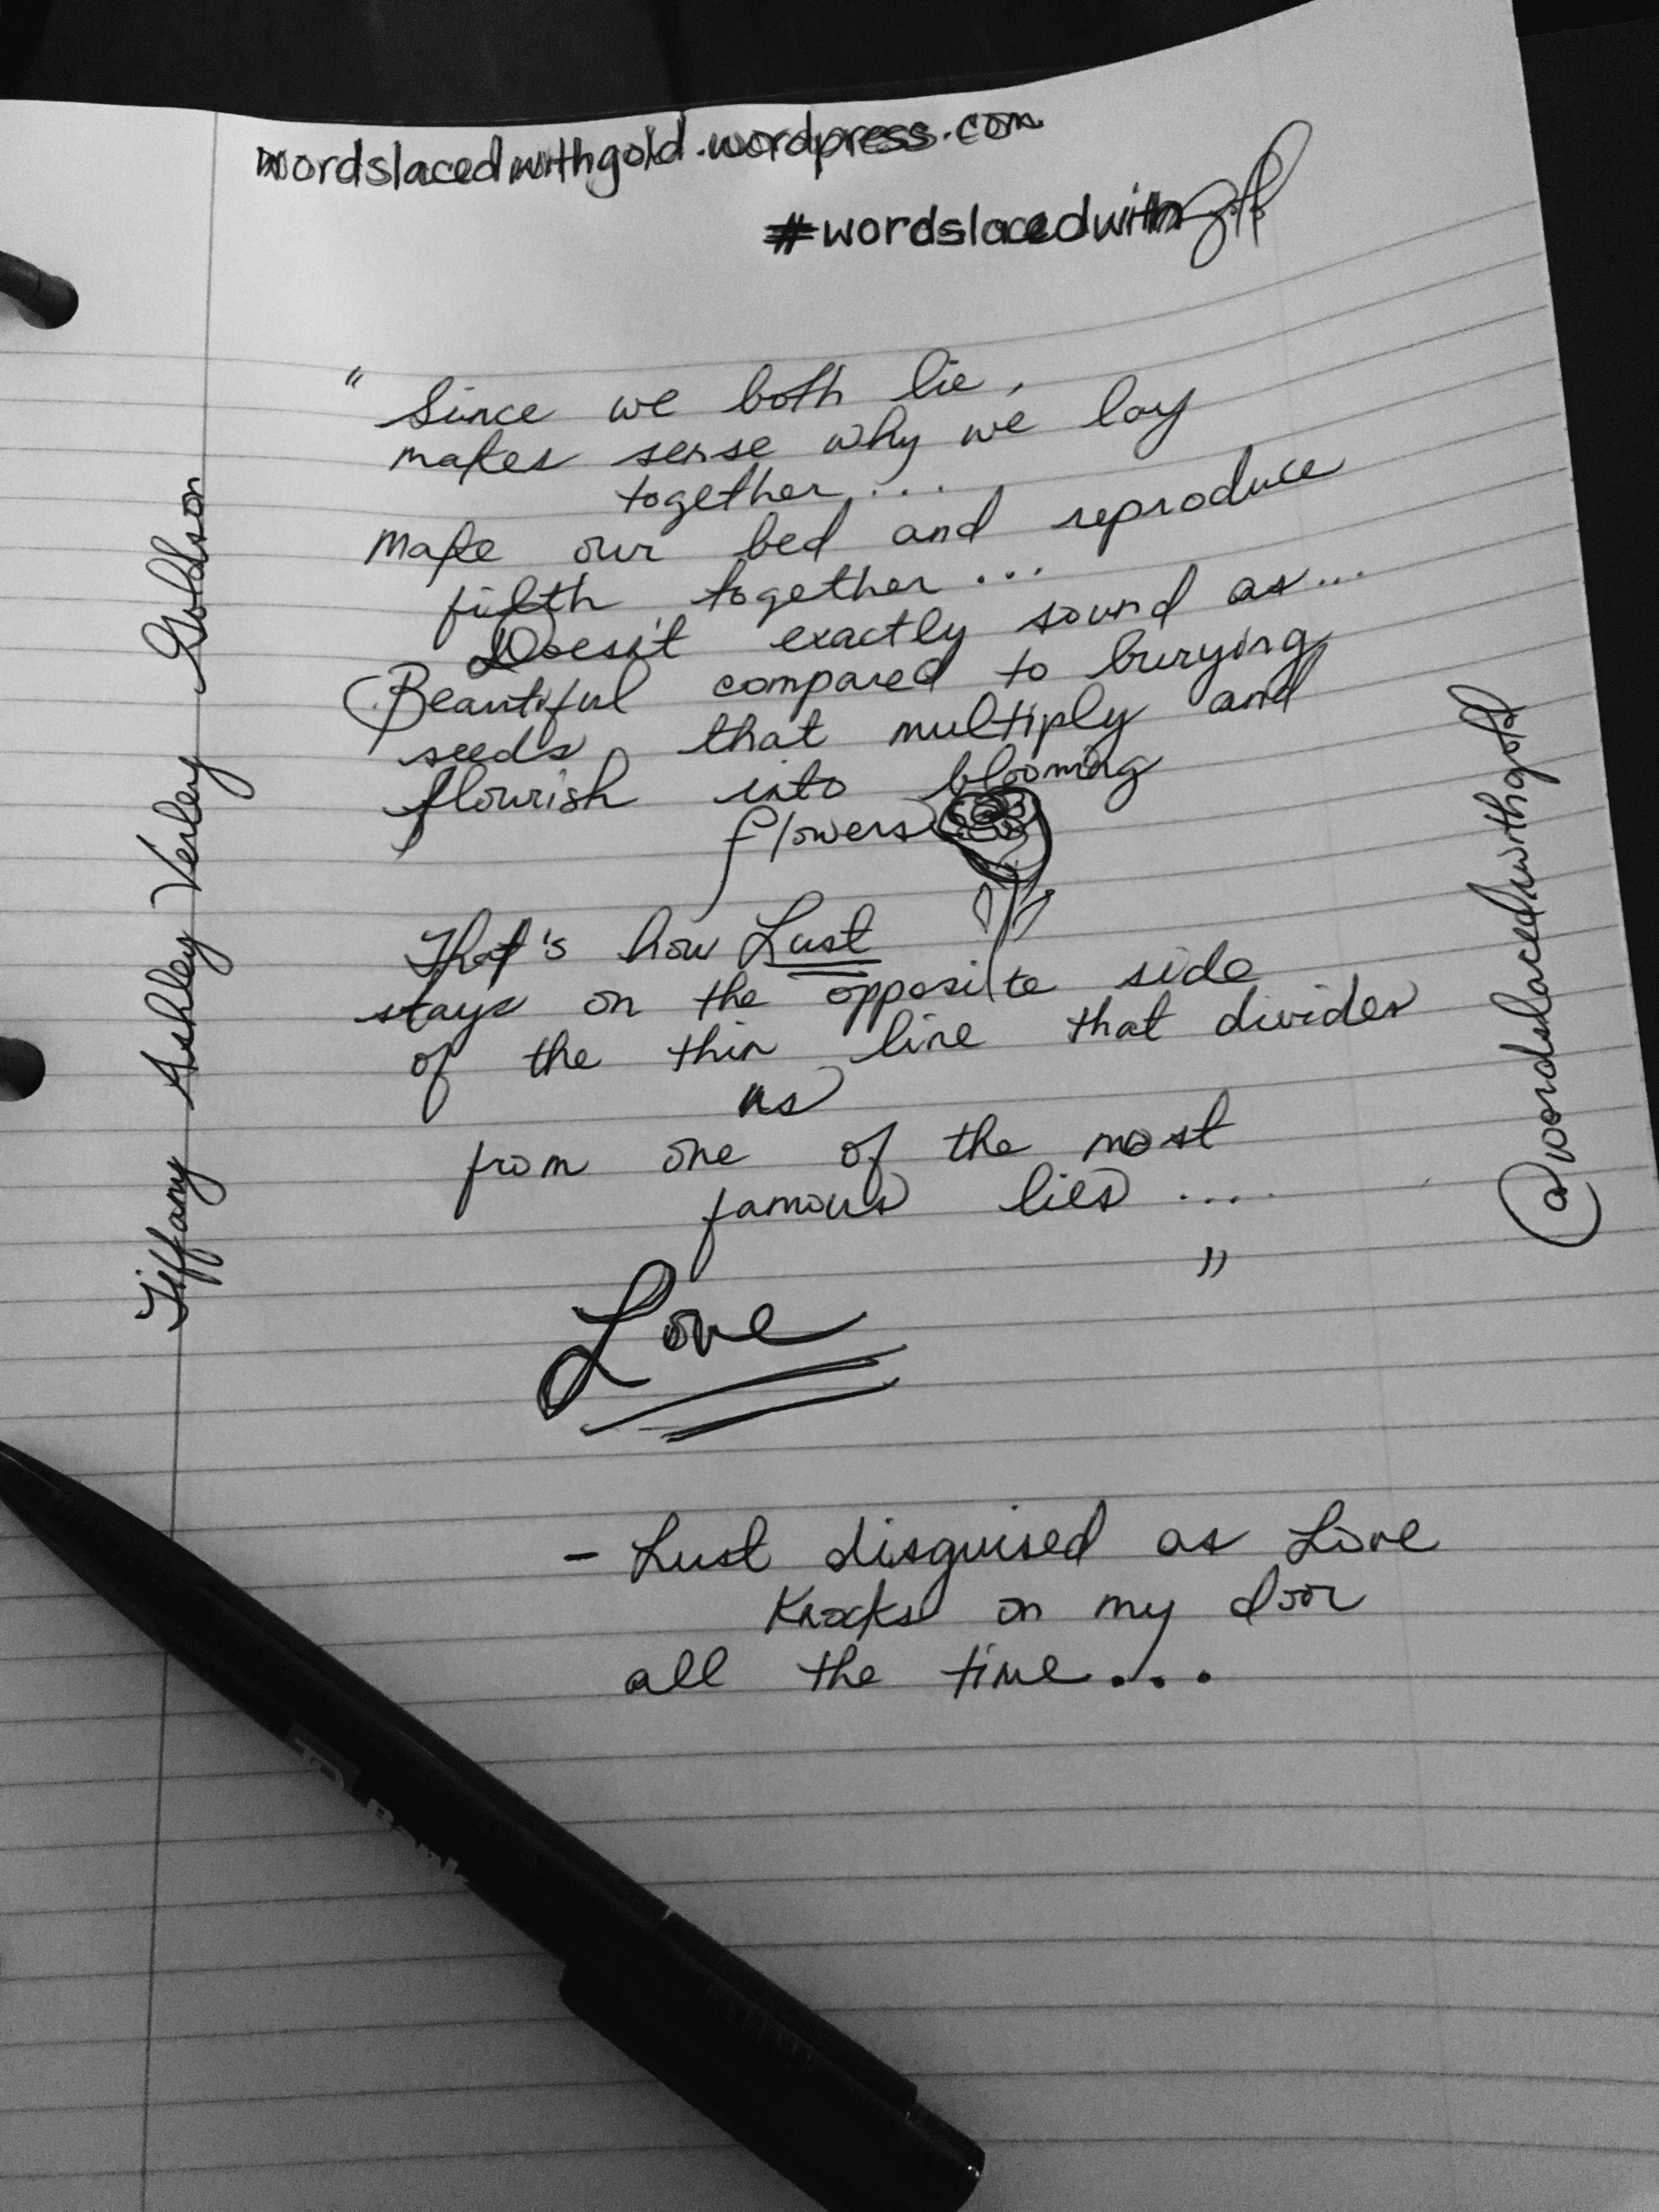 wordslacedwithgold.wordpress.com
#wordslacedwithgold
" Since we both lie,
makes sense why we lay
together....
Make our bed and reproduce
filth together...
Doesn't exactly sound as...
Beautiful compared to burying
seeds that multiply and
flourish into blooming
flowers
That's how Lust
stays on the opposite side
of the thin line that divides
us
from one of the most
famous lies ....
"
Love
- Lust disguised as Love
Knocks on my door
all the time...
Tiffany Ashley Verley Goldson
@wordslacedwithgold